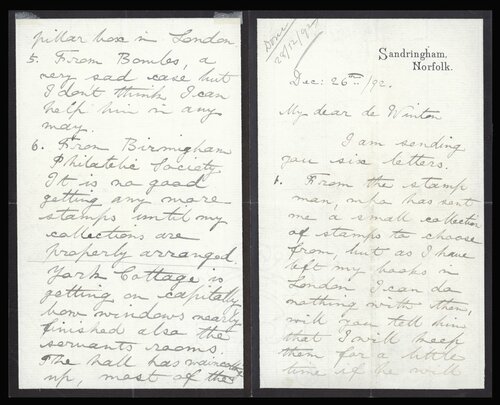 pillar box in London
5. From Bombes, a
very sad case but
I don't think I can
help him in any
way.
6. From Birmigham
Philatelic Society
It is no good
getting any more
stamps until my
collections are
properly arranged
York Cottage is
getting on capitally
bow windows nearly
finished also the
servants rooms.
The hall has
up, most of the
Done
28/12/92
Sandringham.
Norfolk.
Dec: 26th/92.
My dear de Winton
I am sending
you six letters.
1. From the stamp
man, who has sent
me a small collection
of stamps to choose
from, but as I have
left my books in
London I can do
nothing with them,
will you tell him
that I will keep
them for a little
time if he will